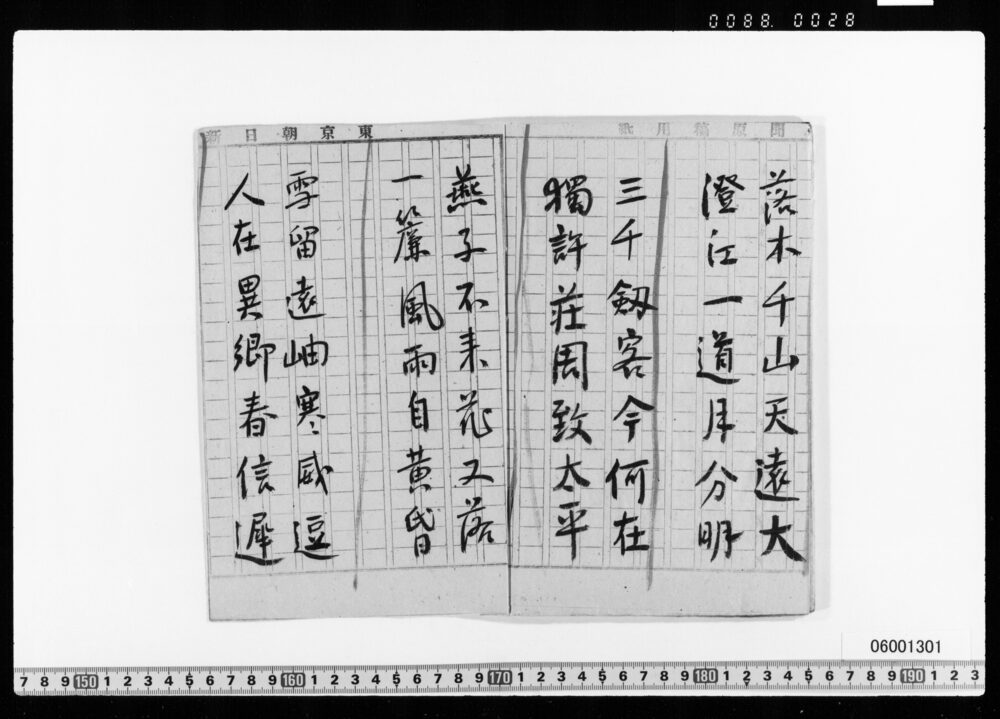 0088. 0028
聞原稿用紙
落木千山天遠大
澄江一道月分明
三千劔客今何在
獨許荘周致太平
東京朝日新
燕子不来花又落
一簾風雨自黄昏
雪留遠岫寒威逗
人在異郷春信遲
06001301
7 8 9 150 1 2 3 4 5 6 7 8 9 160 1 2 3 4 5 6 7 8 9 170 1 2 3 4 5 6 7 8 9 180 1 2 3 4 5 6 7 8 9 190 1 2 3